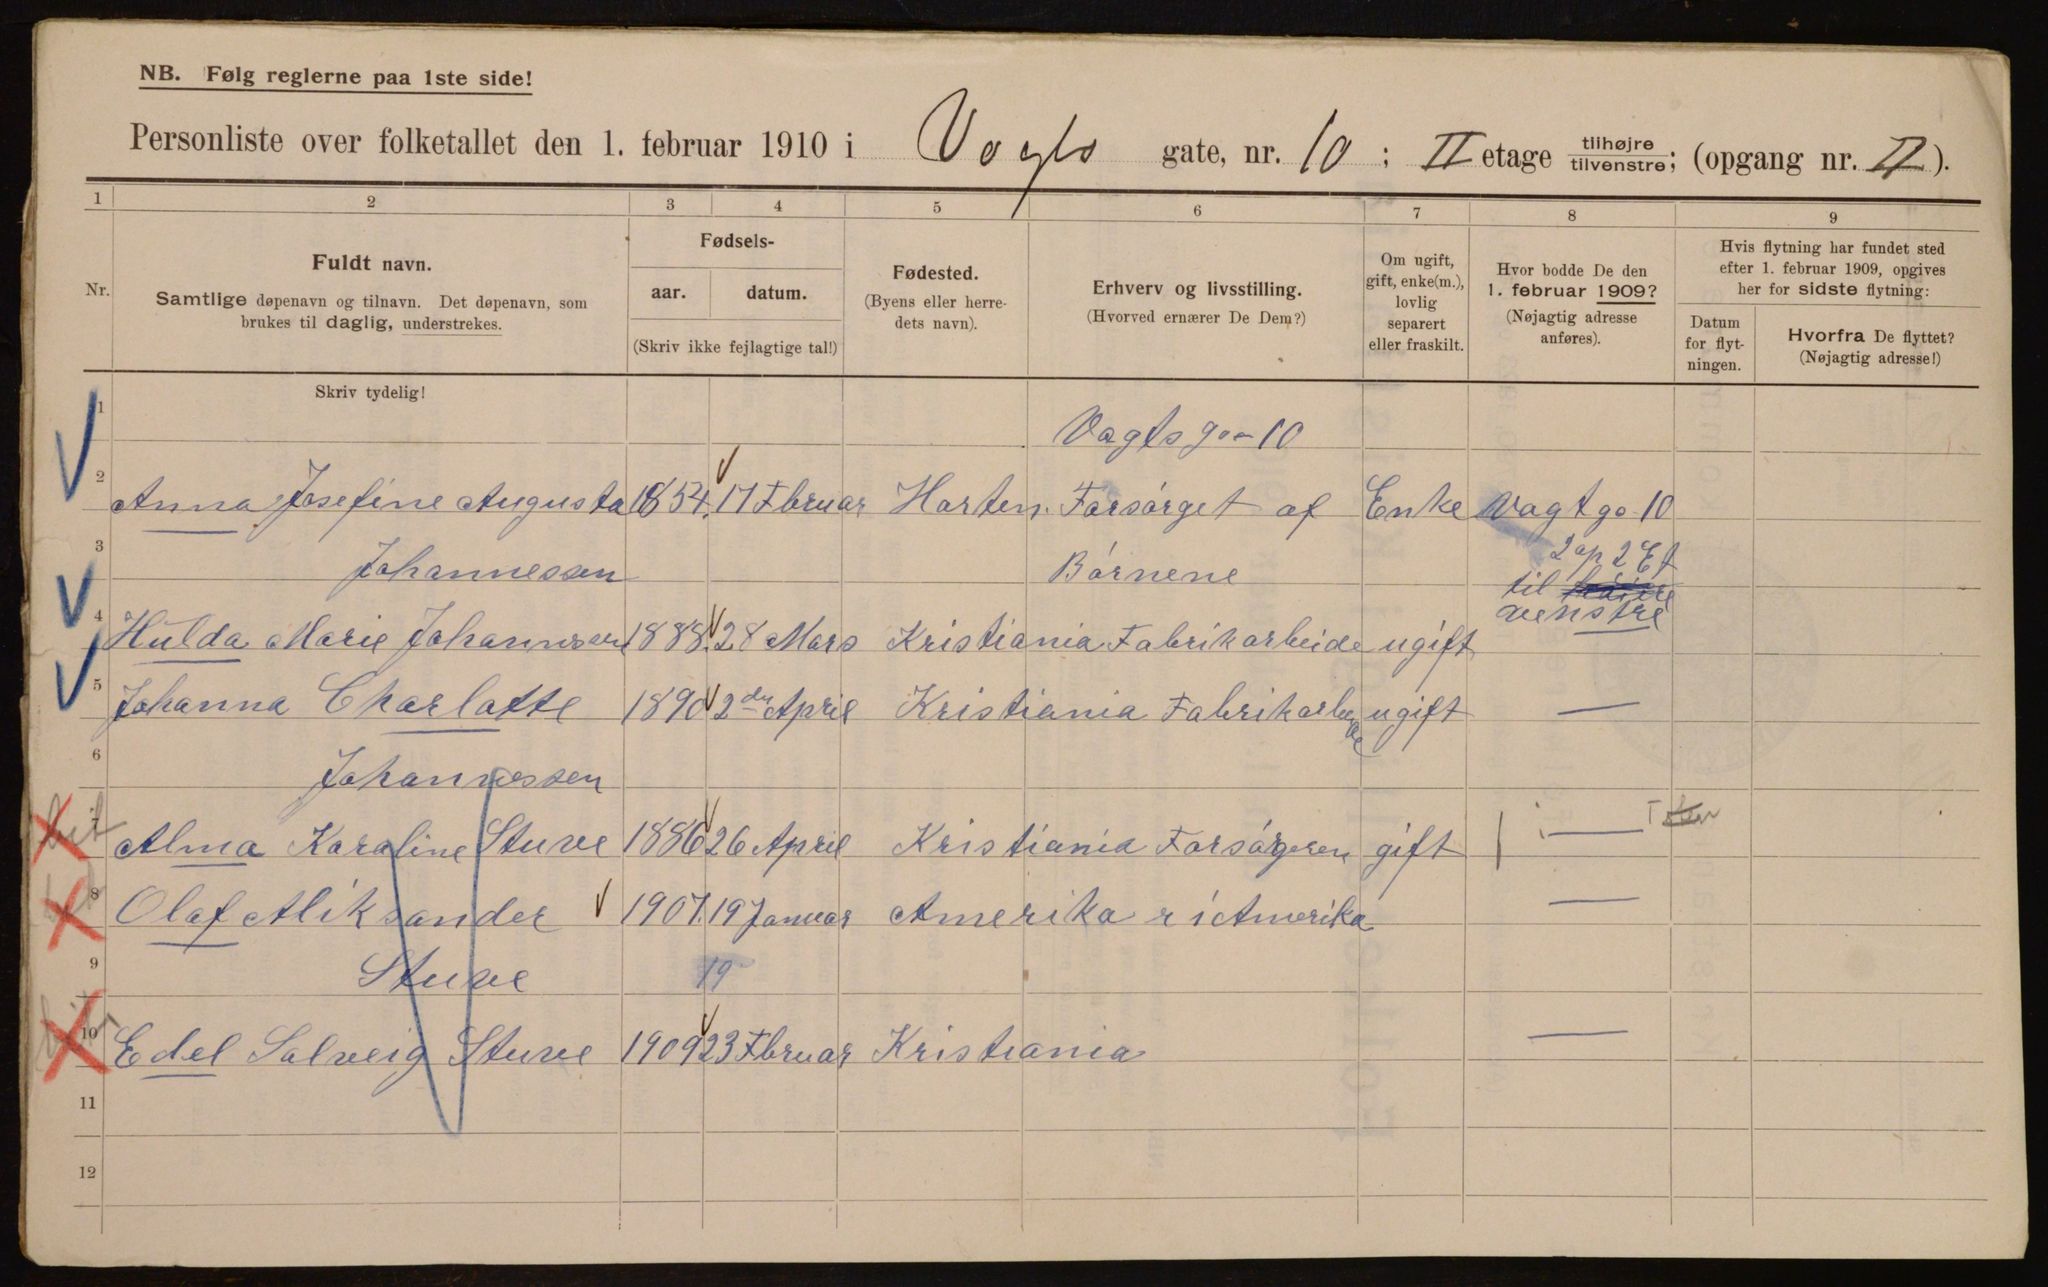 NB. Følg reglerne paa 1ste side!
Personliste over folketallet den 1. februar 1910 i Vogts gate, nr. 10 ; II etage tilhøjre tilvenstre; (opgang nr. II ).
1 2 3 4 5 6 7 8 9
Nr.
Fuldt navn.
Samtlige døpenavn og tilnavn. Det døpenavn, som
brukes til daglig, understrekes.
Fødsels-
aar. datum.
(Skriv ikke fejlagtige tal!)
Fødested.
(Byens eller herre-
dets navn).
Erhverv og livsstilling.
(Hvorved ernærer De Dem?)
Om ugift,
gift, enke(m.),
lovlig
separert
eller fraskilt.
Hvor bodde De den
1. februar 1909?
(Nøjagtig adresse
anføres).
Hvis flytning har fundet sted
efter 1. februar 1909, opgives
her for sidste flytning:
Datum
for flyt-
ningen.
Hvorfra De flyttet?
(Nøjagtig adresse!)
Skriv tydelig!
1 Vogts 10
2 Anna Josefine Augusta 1854. 17 Februar Horten. Forsørget af Enke Vogt go 10
2 op 2 Et
3 Johannessen Børnene til høire
venstre
4 Hulda Marie Johannesen 1888. 28 Mars Kristiania Fabrikarbeide ugift
5 Johanna Charlotte 1890 2den April Kristiania Fabrikarbeide ugift —
6 Johannessen
7 Alma Karoline Stuve 1886 26 April Kristiania Forsørgeren gift —
8 Olaf Aliksander 1907. 19 Januar Amerika r i Amerika —
9 Stuve 19
10 Edel Solveig Stuve 1909 23 Februar Kristiania —
11
12